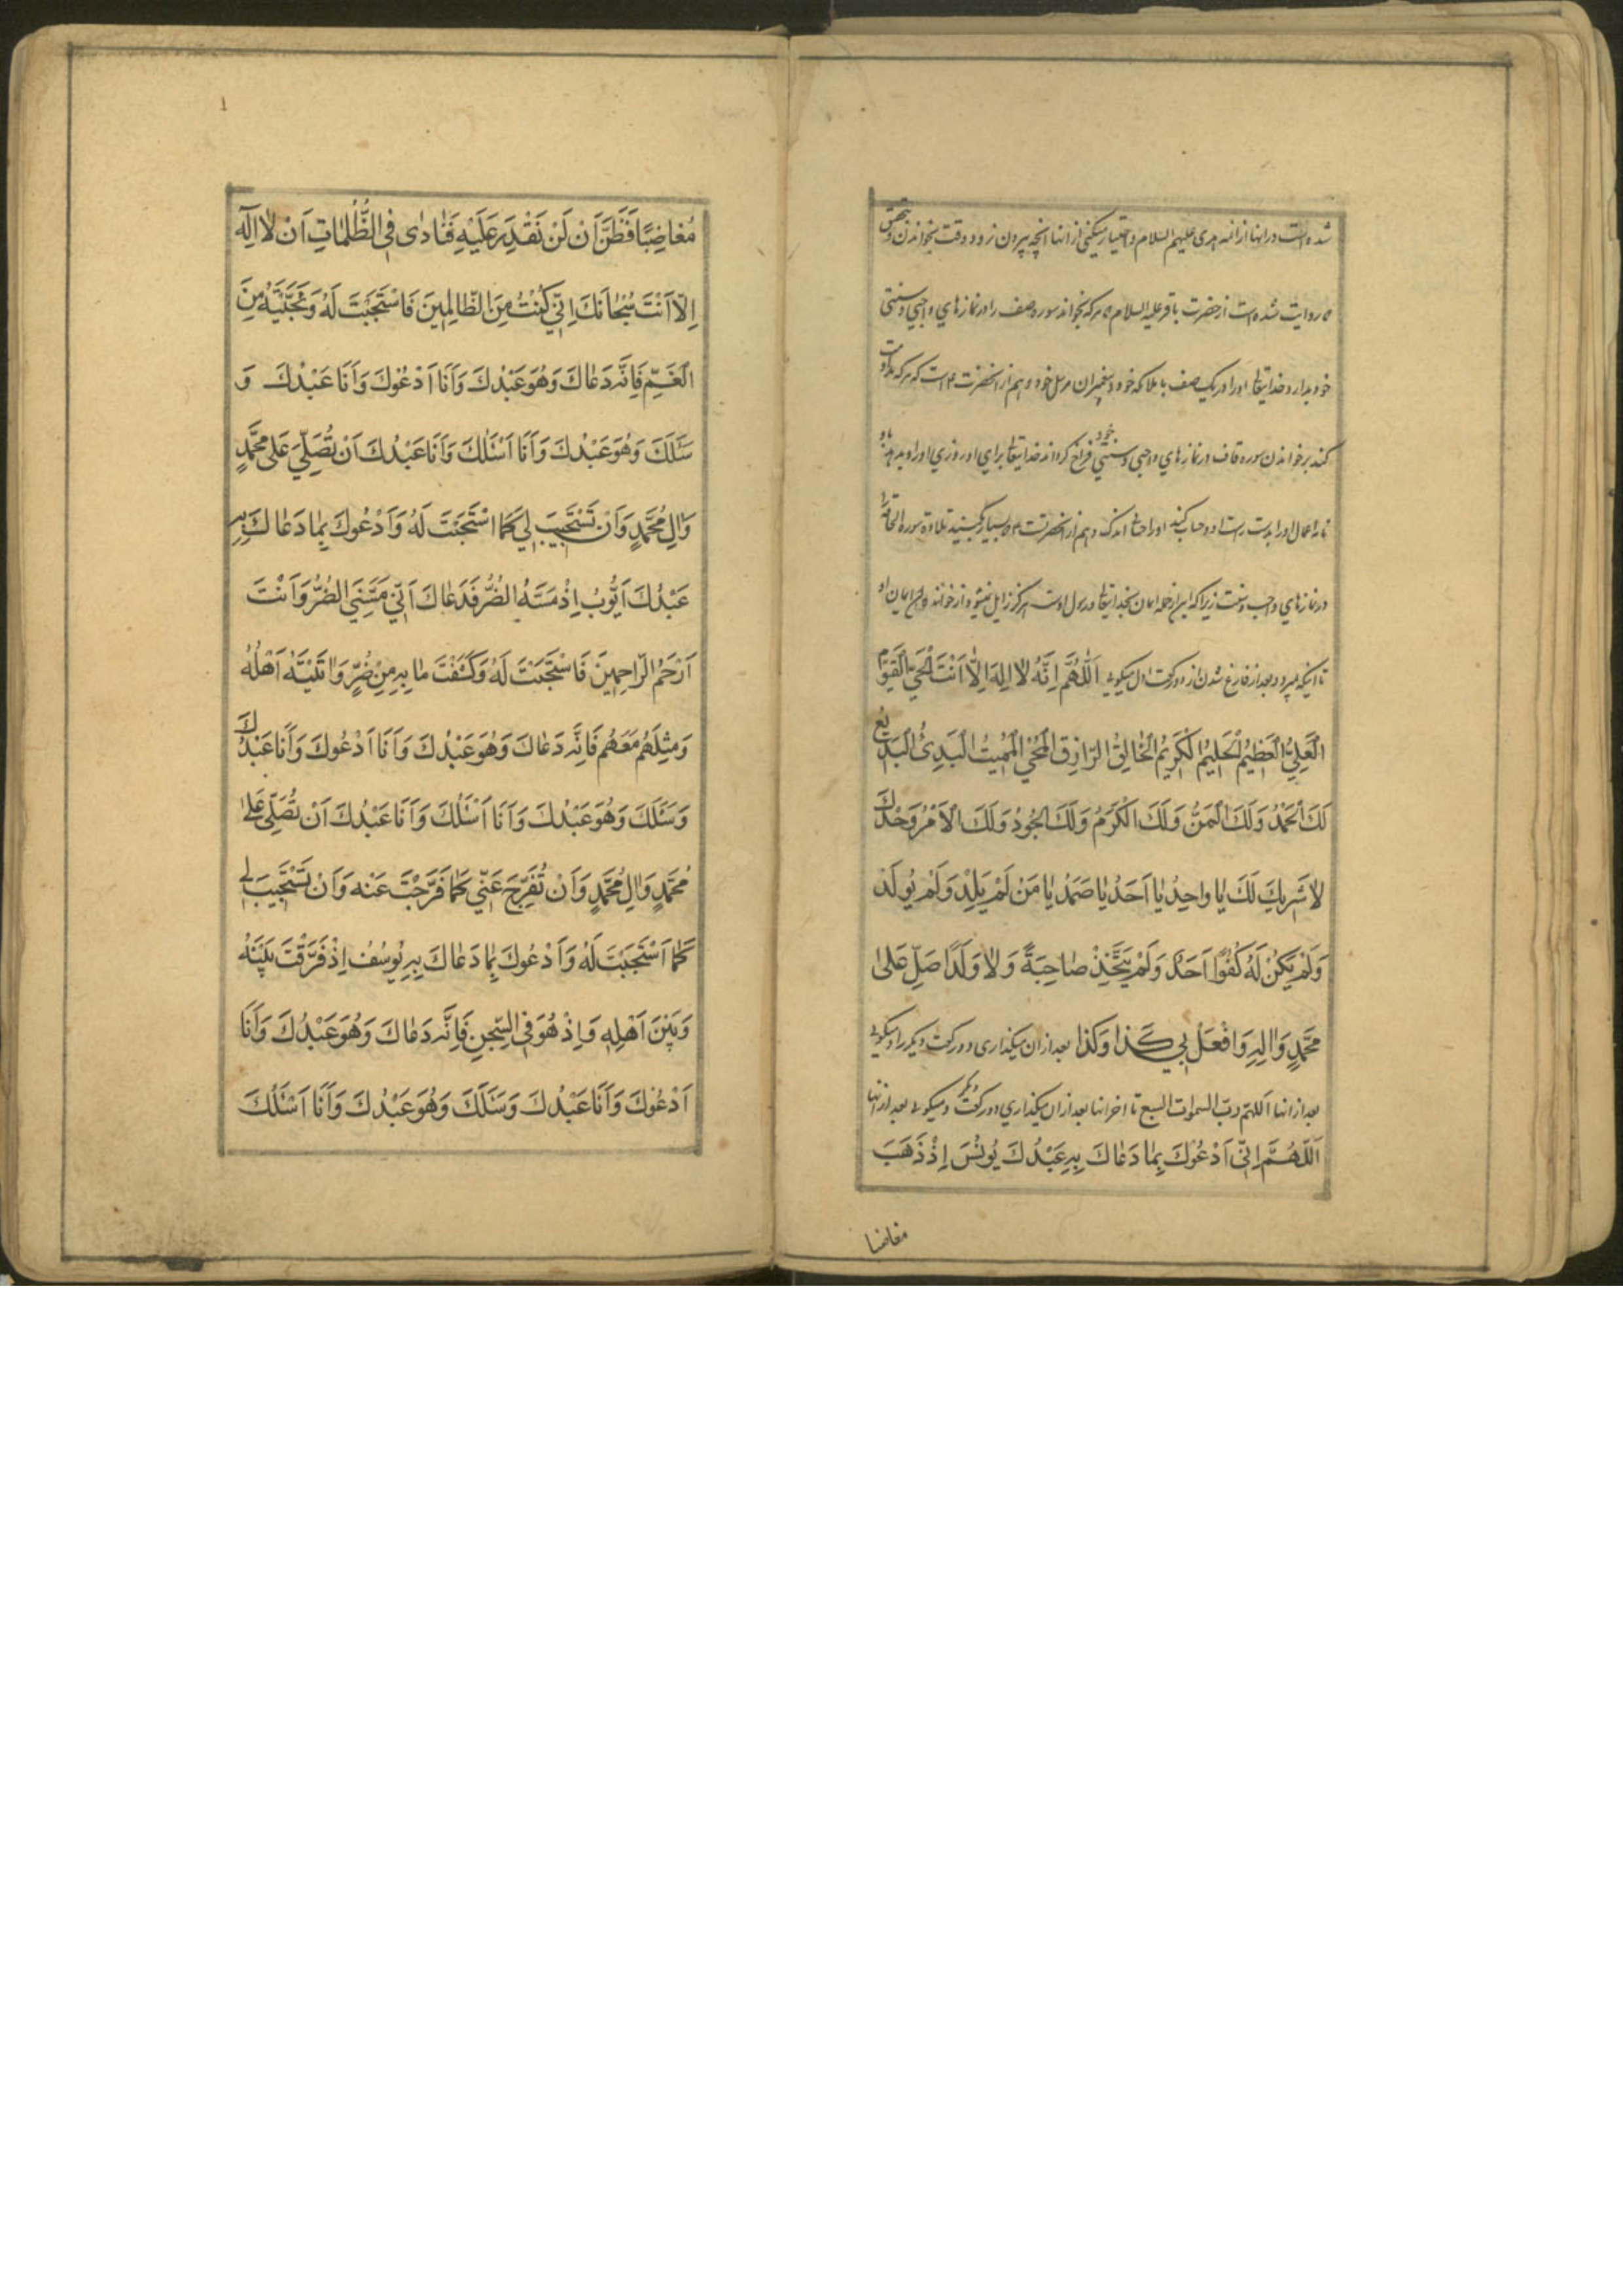 شده است در انها از ائمه هدی علیهم السلام و اختیار میکنی از انها انچه بیرون نرود وقت بخواندن و تحقق
روایت شده است از حضرت باقر علیه السلام که هر که بخواند سوره صف را در نمازهای واجبی و سنتی
خود بدارد خدایتعالی او را در یک صف با ملائکه خود و پیغمبران مرسل خود و هم از انحضرت است که هر که مداومت
کند بر خواندن سوره قاف در نمازهای واجبی و سنتی خود فراخ کرداند خدایتعالی برای او روزی او را و بدهد باو
نامه اعمال او را بدست راست او و حساب کند او را حسابی اندک و هم از انحضرت است که بسیار کنید تلاوة سوره الحاقه را
در نمازهای واجب و سنت زیرا که این از جمله ایمان بخدایتعالی و رسول اوست هرکز زایل نمیشود از خواننده ان ایمان او
تا اینکه بمیرد و بعد از فارغ شدن از دو رکعت اول میکوئی اَللّٰهُمَّ اِنَّهُ لاٰ اِلٰهَ اِلاّٰ اَنْتَ الْحَيُّ الْقَيُّومُ
الْعَلِيُّ الْعَظِيمُ الْحَلِيمُ الْكَرِيمُ الْخٰالِقُ الرّٰازِقُ الْمُحْيِي الْمُمِيتُ الْبَدِيءُ الْبَدِيعُ
لَكَ الْحَمْدُ وَلَكَ الْمَنُّ وَلَكَ الْكَرَمُ وَلَكَ الْجُودُ وَلَكَ الْاَمْرُ وَحْدَكَ
لاٰ شَرِيكَ لَكَ يٰا وٰاحِدُ يٰا اَحَدُ يٰا صَمَدُ يٰا مَنْ لَمْ يَلِدْ وَلَمْ يُولَدْ
وَلَمْ يَكُنْ لَهُ كُفُوًا اَحَدٌ وَلَمْ يَتَّخِذْ صٰاحِبَةً وَلاٰ وَلَدًا صَلِّ عَلىٰ
مُحَمَّدٍ وَاٰلِهِ وَافْعَلْ بِي كَذٰا وَكَذٰا بعد از ان میکذاری دو رکعت دیکر را و میکوئی
بعد از انها اللهم رب السموات السبع تا اخر انها بعد از ان میکذاری دو رکعت دیکر و میکوئی بعد از انها
اَللّٰهُمَّ اِنّي اَدْعُوكَ بِمٰا دَعٰاكَ بِهِ عَبْدُكَ يُونُسَ اِذْ ذَهَبَ
مغاضبا
مُغٰاضِبًا فَظَنَّ اَنْ لَنْ نَقْدِرَ عَلَيْهِ فَنٰادىٰ فِي الظُّلُمٰاتِ اَنْ لاٰ اِلٰهَ
اِلاّٰ اَنْتَ سُبْحٰانَكَ اِنّي كُنْتُ مِنَ الظّٰالِمِينَ فَاسْتَجَبْتَ لَهُ وَنَجَّيْتَهُ مِنَ
الْغَمِّ فَاِنَّهُ دَعٰاكَ وَهُوَ عَبْدُكَ وَاَنَا اَدْعُوكَ وَاَنَا عَبْدُكَ وَ
سَئَلَكَ وَهُوَ عَبْدُكَ وَاَنَا اَسْئَلُكَ وَاَنَا عَبْدُكَ اَنْ تُصَلِّيَ عَلىٰ مُحَمَّدٍ
وَاٰلِ مُحَمَّدٍ وَاَنْ تَسْتَجِيبَ لِي كَمَا اسْتَجَبْتَ لَهُ وَاَدْعُوكَ بِمٰا دَعٰاكَ بِهِ
عَبْدُكَ اَيُّوبُ اِذْ مَسَّهُ الضُّرُّ فَدَعٰاكَ اَنّي مَسَّنِيَ الضُّرُّ وَاَنْتَ
اَرْحَمُ الرّٰاحِمِينَ فَاسْتَجَبْتَ لَهُ وَكَشَفْتَ مٰا بِهِ مِنْ ضُرٍّ وَاٰتَيْتَهُ اَهْلَهُ
وَمِثْلَهُمْ مَعَهُمْ فَاِنَّهُ دَعٰاكَ وَهُوَ عَبْدُكَ وَاَنَا اَدْعُوكَ وَاَنَا عَبْدُكَ
وَسَئَلَكَ وَهُوَ عَبْدُكَ وَاَنَا اَسْئَلُكَ وَاَنَا عَبْدُكَ اَنْ تُصَلِّيَ عَلىٰ
مُحَمَّدٍ وَاٰلِ مُحَمَّدٍ وَاَنْ تُفَرِّجَ عَنّي كَمٰا فَرَّجْتَ عَنْهُ وَاَنْ تَسْتَجِيبَ لِي
كَمَا اسْتَجَبْتَ لَهُ وَاَدْعُوكَ بِمٰا دَعٰاكَ بِهِ يُوسُفُ اِذْ فَرَّقْتَ بَيْنَهُ
وَبَيْنَ اَهْلِهِ وَاِذْ هُوَ فِي السِّجْنِ فَاِنَّهُ دَعٰاكَ وَهُوَ عَبْدُكَ وَاَنَا
اَدْعُوكَ وَاَنَا عَبْدُكَ وَسَئَلَكَ وَهُوَ عَبْدُكَ وَاَنَا اَسْئَلُكَ